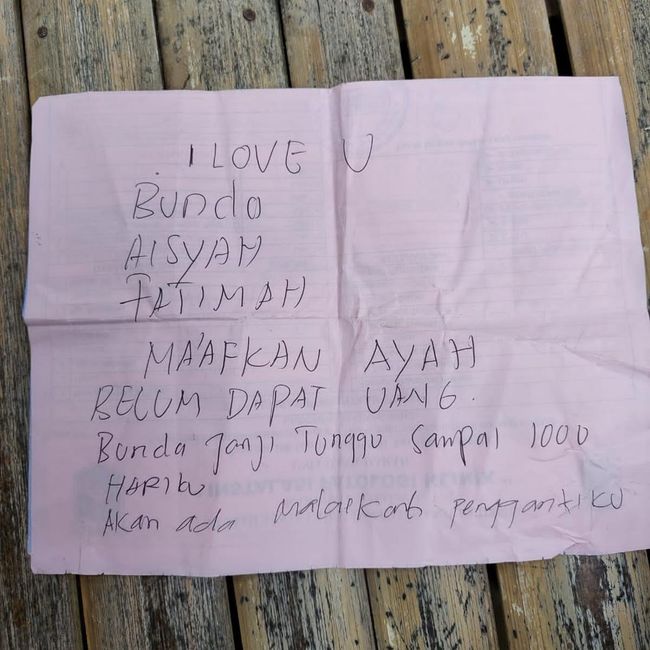 I LOVE U
Bunda
AISYAH
FATIMAH
MA'AFKAN AYAH
BELUM DAPAT UANG.
Bunda Janji Tunggu Sampai 1000
HARIKU
Akan ada Malaikat penggantiKU